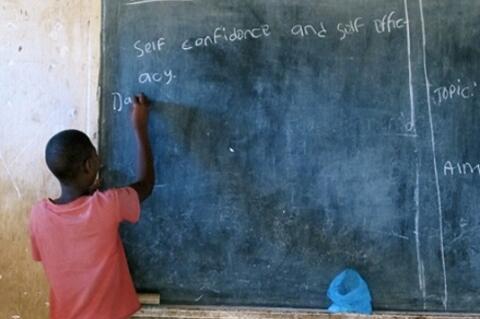 Self confidence and self effic-
acy.
Da
Topic:
Aim